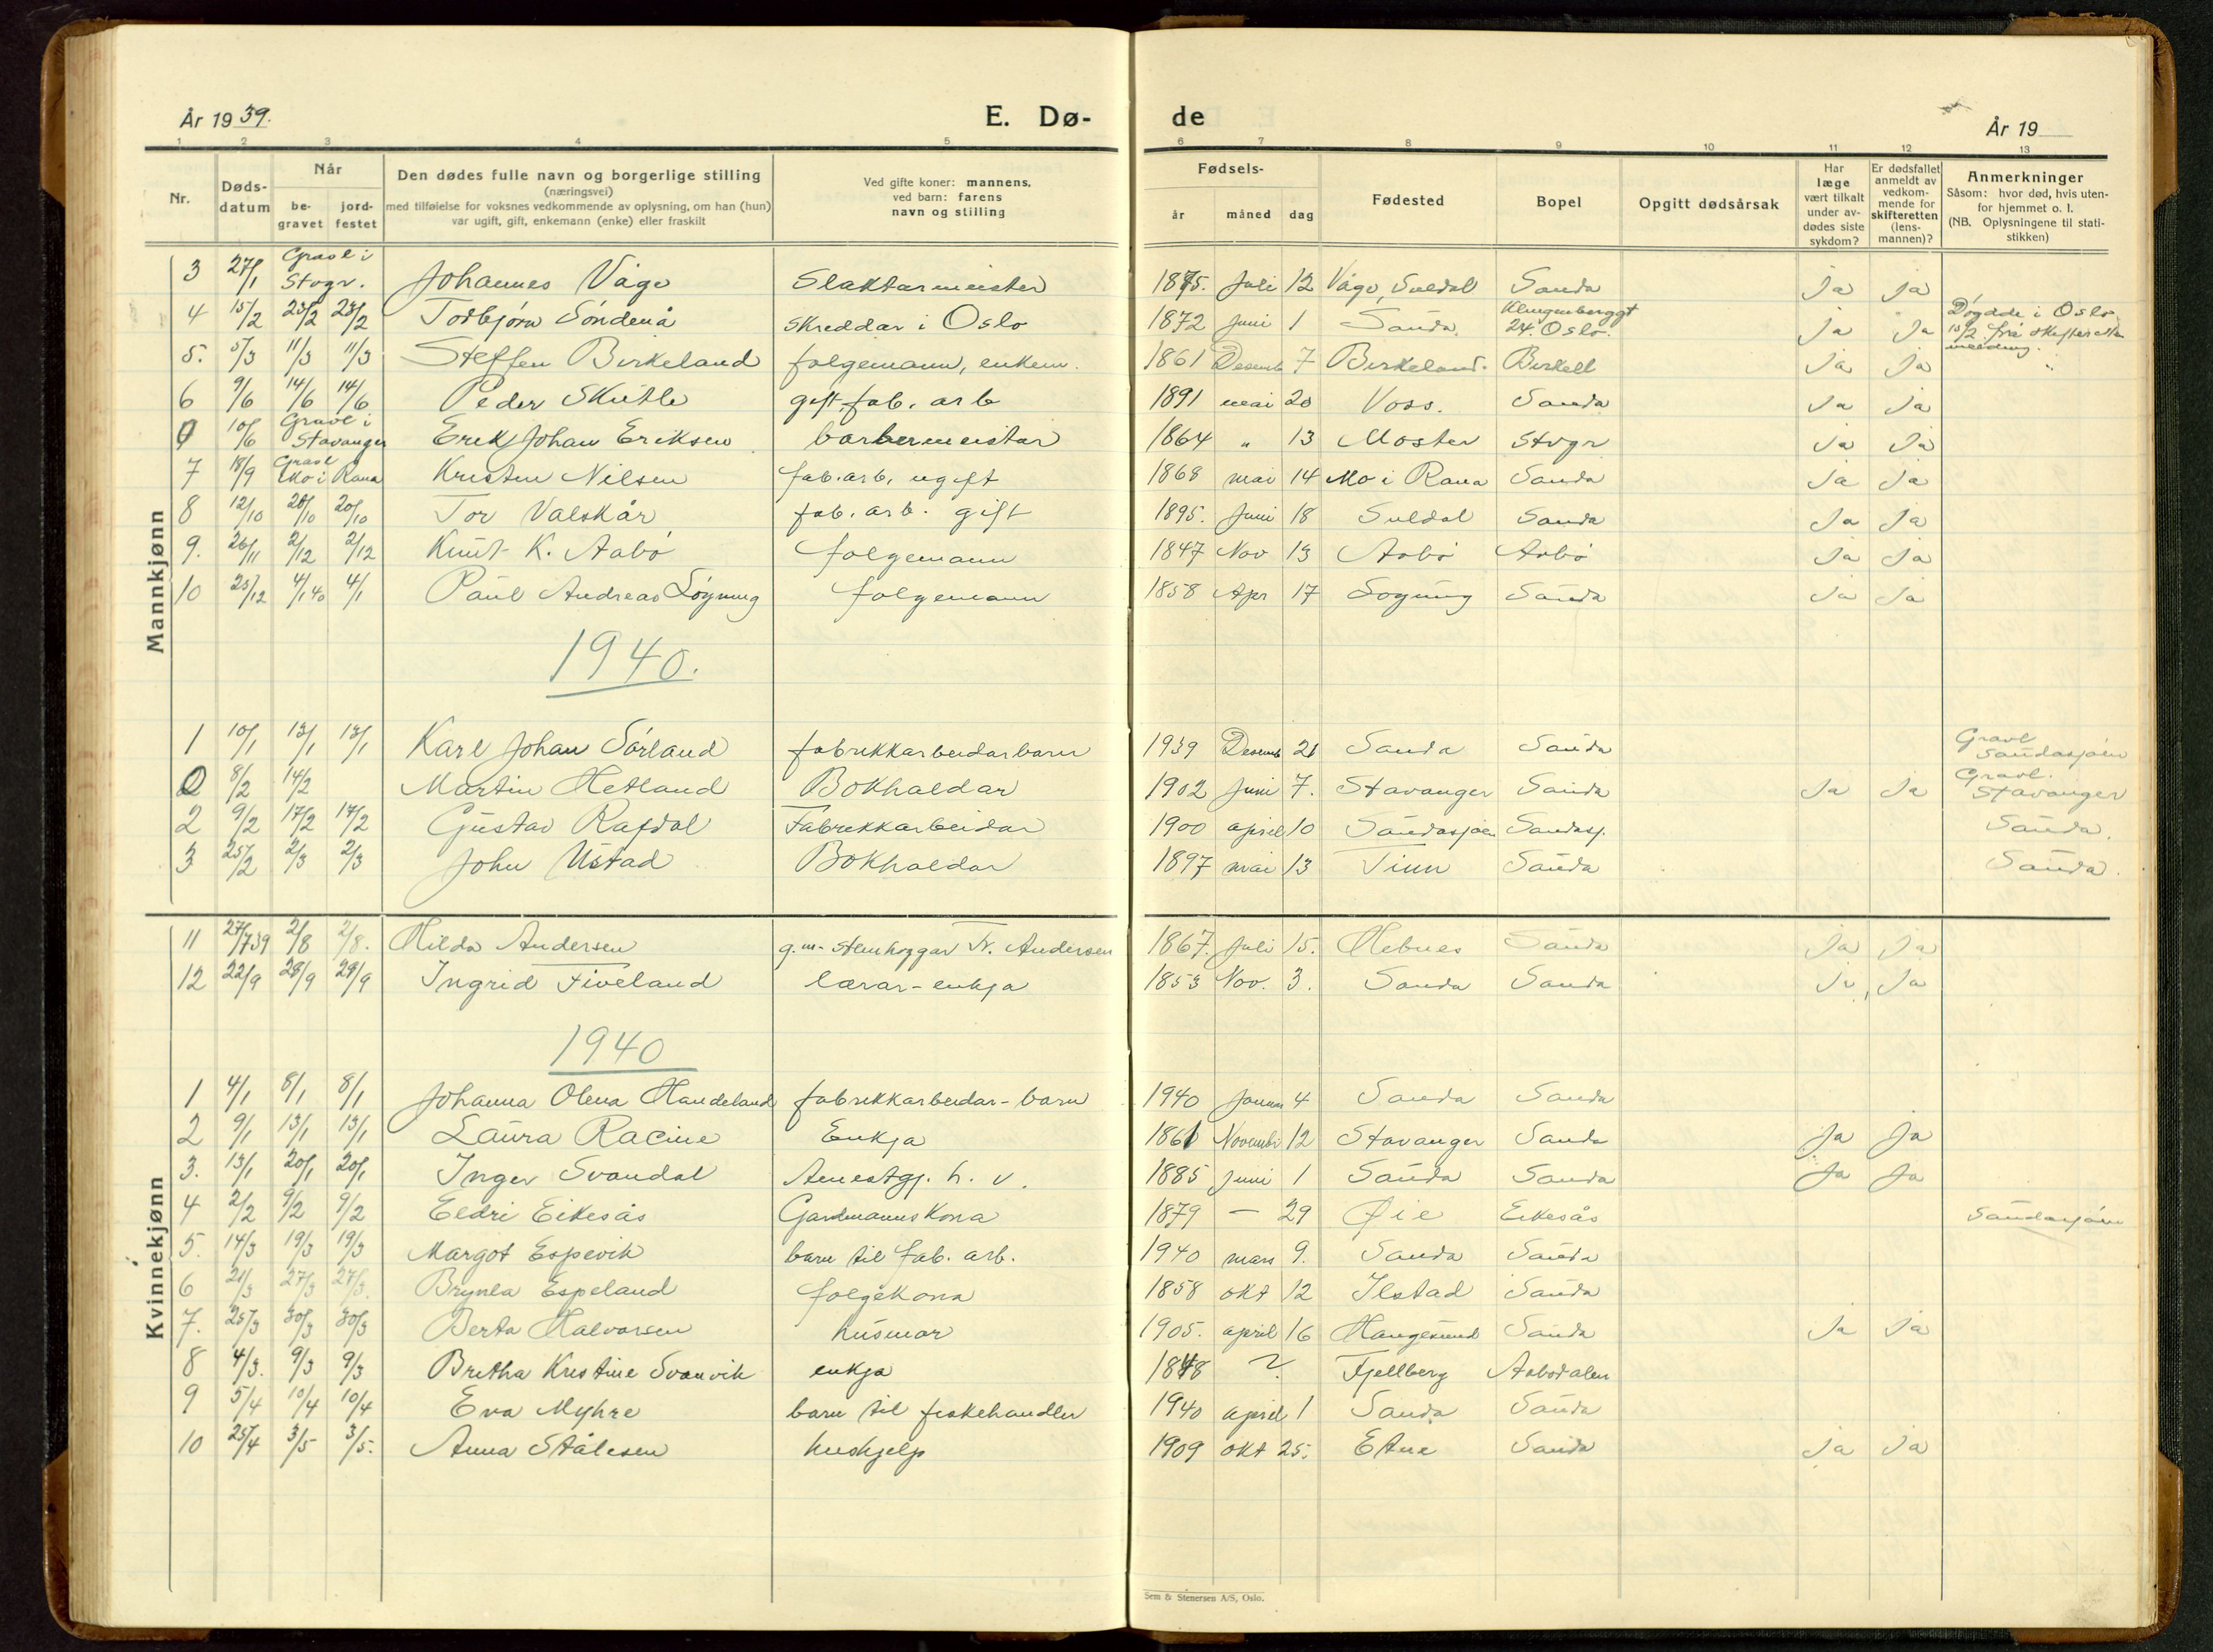 År 1939.
E. Dø-
de
År 19
1 2 3 4 5 6 7 8 9 10 11 12 13
Nr.
Døds-
datum
Når
be-
gravet
jord-
festet
Den dødes fulle navn og borgerlige stilling
(næringsvei)
med tilføielse for voksnes vedkommende av oplysning, om han (hun)
var ugift, gift, enkemann (enke) eller fraskilt
Ved gifte koner: mannens,
ved barn: farens
navn og stilling
Fødsels-
år måned dag
Fødested
Bopel
Opgitt dødsårsak
Har
læge
vært tilkalt
under av-
dødes siste
sykdom?
Er dødsfallet
anmeldt av
vedkom-
mende for
skifteretten
(lens-
mannen)?
Anmerkninger
Såsom: hvor død, hvis uten-
for hjemmet o. l.
(NB. Oplysningene til stati-
stikken)
Mannkjønn
3 27/1 Gravl i Stvgr. Johannes Våge Slaktarmeister 1875. Juli 12 Våge, Suldal Sauda Ja Ja
4 15/2 23/2 23/2 Torbjørn Söndenå Skreddar i Oslo 1872 Juni 1 Sauda Klingenberggt 24. Oslo. Ja Ja Døydde i Oslo 15/2 frå skifteretten melding.
5. 5/3 11/3 11/3 Steffen Birkeland følgemann, enkem. 1861 Desemb 7 Birkeland. Birkell Ja Ja
6 9/6 14/6 14/6 Peder Skutle gift, fab. arb 1891 mai 20 Voss. Sauda Ja Ja
0 10/6 Gravl i Stavanger Erik Johan Eriksen barbermeistar 1864 " 13 Moster Stvgr Ja Ja
7 18/9 Gravl Mo i Rana Kristen Nilsen fab. arb. ugift 1868 mai 14 Mo i Rana Sauda Ja Ja
8 12/10 20/10 20/10 Tor Valskår fab. arb. gift 1895. Juni 18 Suldal Sauda Ja Ja
9. 26/11 2/12 2/12 Knut K. Aabö følgemann 1847 Nov 13 Aabö Aabö Ja Ja
10 25/12 4/1 40 4/1 Paul Andreas Løgning følgemann 1858 Apr 17 Søgning Sauda Ja Ja
1940.
1 10/1 13/1 13/1 Karl Johan Sörland fabrikkarbeidarbarn 1939 Desemb 21 Sauda Sauda Gravl Saudasjöen
0 8/2 14/2 Martin Hetland Bokhaldar 1902 Juni 7. Stavanger Sauda Ja Ja Gravl. Stavanger
2 9/2 17/2 17/2 Gustav Rafdal Fabrikkarbeidar 1900 april 10 Saudasjöen Saudasj. Sauda.
3 25/2 2/3 2/3 John Ustad Bokhaldar 1897 mai 13 Tinn Sauda Sauda.
Kvinnekjønn
11 27/7 39 2/8 2/8. Hilda Andersen g.m. stenhoggar N. Andersen 1867. Juli 15. Hebnes Sauda Ja Ja
12 22/9 28/9 29/9 Ingrid Fiveland lærar-enkja 1853 Nov. 3. Sauda Sauda Ja Ja
1940
1 4/1 8/1 8/1 Johanna Olena Handeland fabrikkarbeidar-barn 1940 Januar 4 Sauda Sauda
2 9/1 13/1 13/1 Laura Racine Enkja 1861 Novembr 12 Stavanger Sauda Ja Ja
3. 13/1 20/1 20/1 Inger Svandal h. v. 1885 Juni 1 Sauda Sauda Ja Ja
4 2/2 9/2 9/2 Eldri Eikesås Gardmannskona 1879 — 29 Øie Eikesås Saudasjöen
5. 14/3 19/3 19/3 Margot Espevik barn til fab. arb. 1940 mars 9. Sauda Sauda
6 21/3 27/3 27/3. Brynla Espeland følgekona 1858 okt 12 Ilstad Sauda
7. 25/3 30/3 30/3 Berta Halvorsen husmor 1905. april 16 Haugesund Sauda Ja Ja
8 4/3. 9/3 9/3 Bretha Kristine Svanvik enkja 1848 ? Fjellberg Aabødalen
9 5/4 10/4 10/4 Eva Myhre barn til fiskehandler 1940 april 1 Sauda Sauda
10 25/4 3/5 3/5. Anna Stålesen hushjelp 1909 okt 25. Etne Sauda Ja Ja
Sem & Stenersen A/S, Oslo.